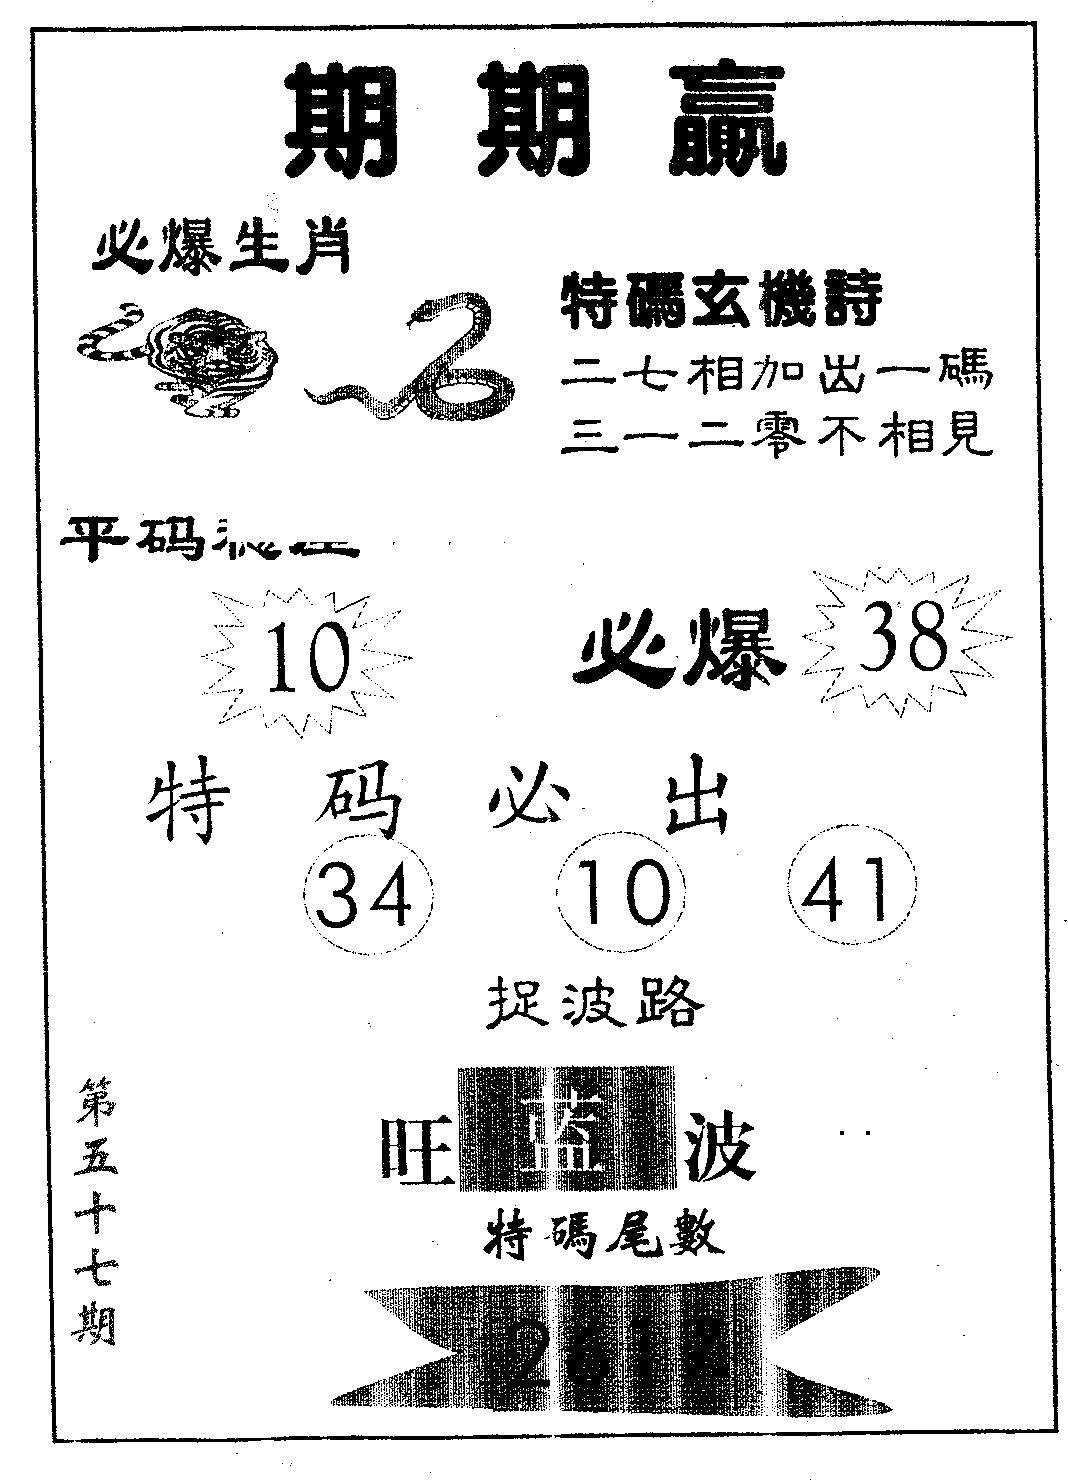 期期贏
必爆生肖
特碼玄機詩
二七相加出一碼
三一二零不相見
平码
10
必爆 38
特码必出
34 10 41
捉波路
旺藍波
特碼尾數
261
第五十七期